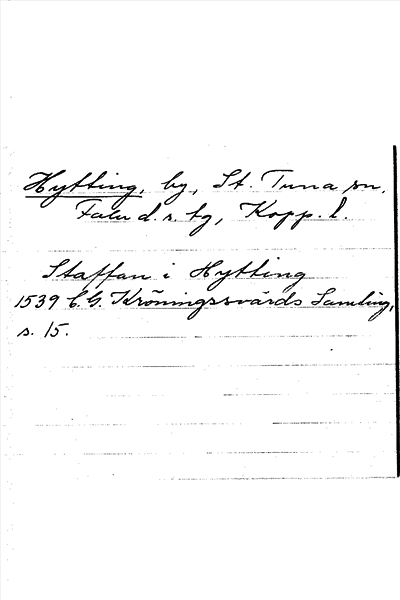 Hytting, by, St. Tuna sn.
Falu d. s. tg, Kopp. l.
Staffan i Hytting
1539 C. G. Kröningssvärds Samling,
s. 15.